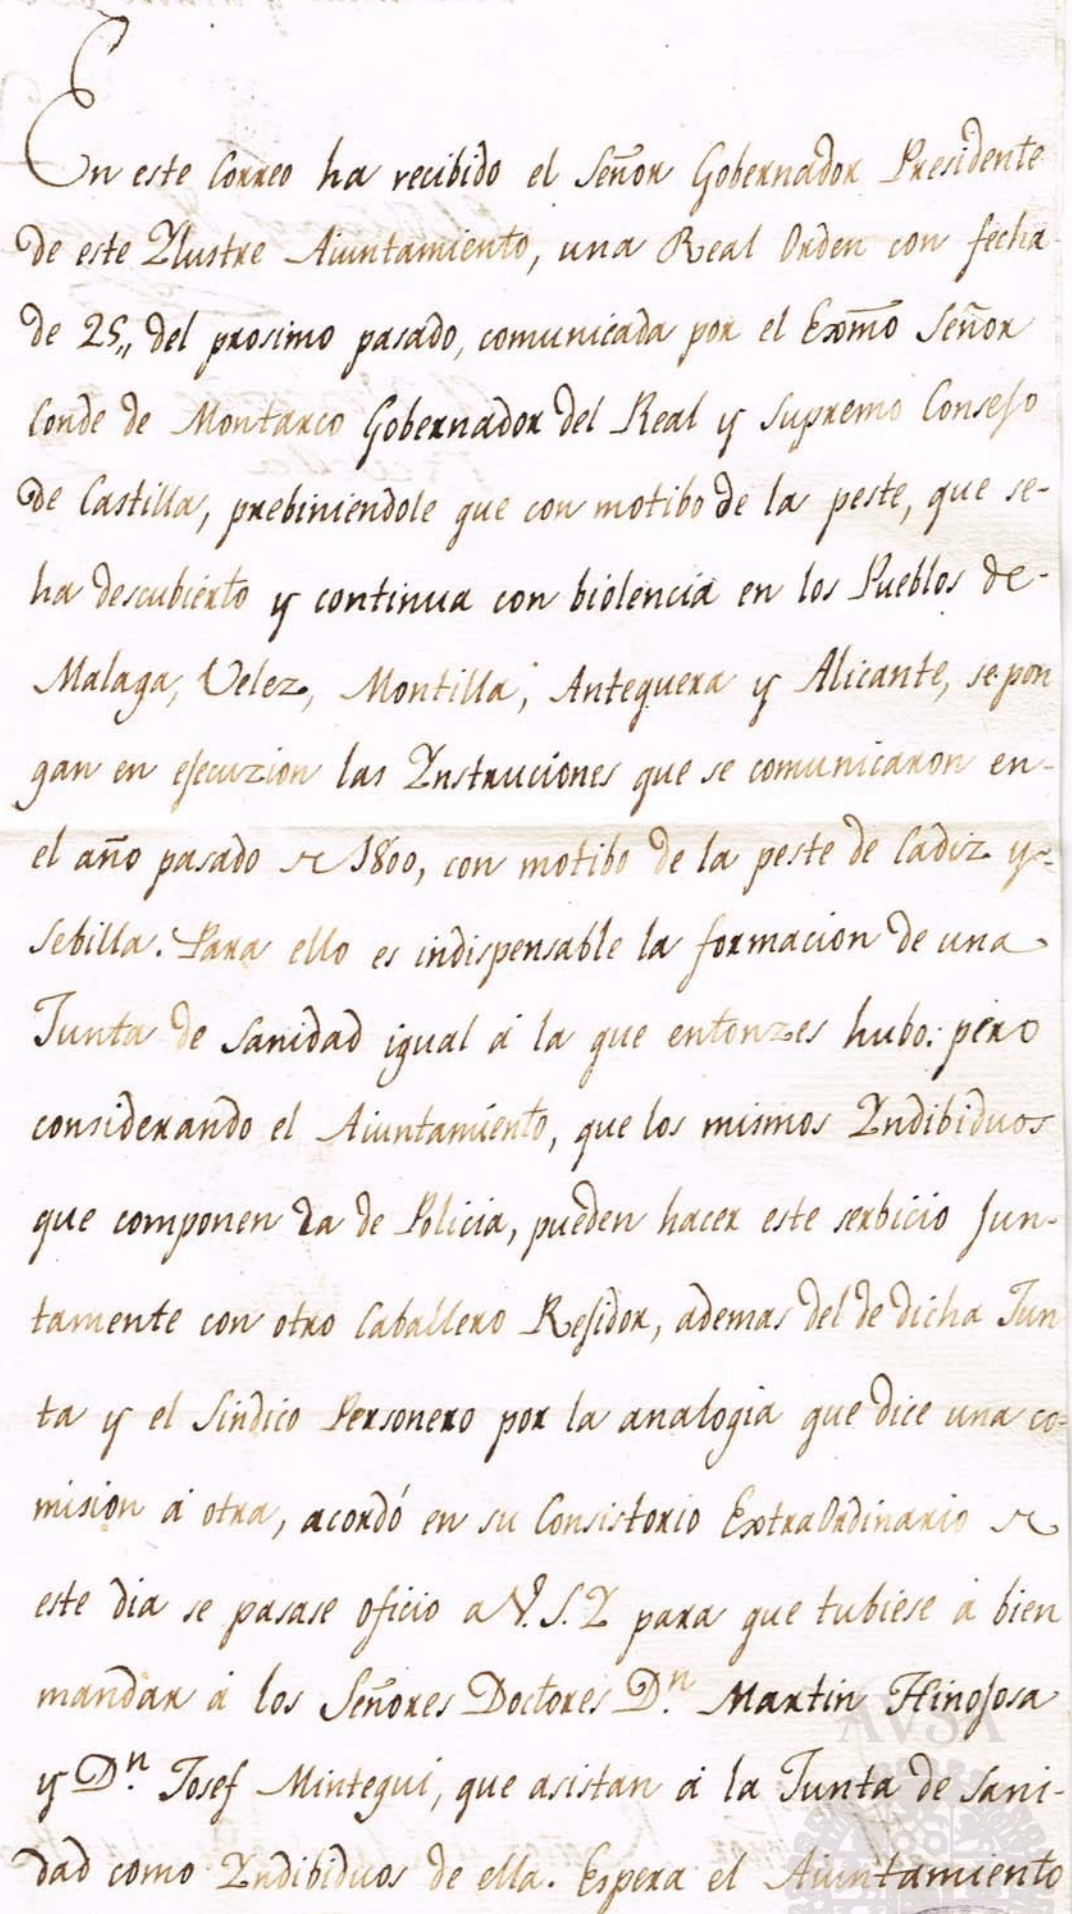 En este Correo ha recibido el Señor Gobernador Presidente
de este Ylustre Aiuntamiento, una Real Orden con fecha
de 25,, del prosimo pasado, comunicada por el Exmõ Señor
Conde de Montarco Gobernador del Real y Supremo Consejo
de Castilla, prebiniendole que con motibo de la peste, que se-
ha descubierto y continua con biolencia en los Pueblos de-
Malaga, Velez, Montilla, Antequera y Alicante, se pon
gan en ejecuzion las Ynstruciones que se comunicaron en-
el año pasado de 1800, con motibo de la peste de Cadiz y-
Sebilla. Para ello es indispensable la formacion de una
Junta de Sanidad igual á la que entonzes hubo: pero
considerando el Aiuntamiento, que los mismos Yndibiduos
que componen la de Policia, pueden hacer este serbicio jun-
tamente con otro Caballero Rejidor, ademas del de dicha Jun
ta y el Sindico Personero por la analogia que dice una co=
mision á otra, acordó en su Consistorio ExtraOrdinario de
este dia se pasase oficio a V.S.Y para que tubiese á bien
mandar á los Señores Doctores D.n Martin Hinojosa
y D.n Josef Mintegui, que asistan á la Junta de Sani-
dad como Yndibiduos de ella. Espera el Aiuntamiento
AVSA